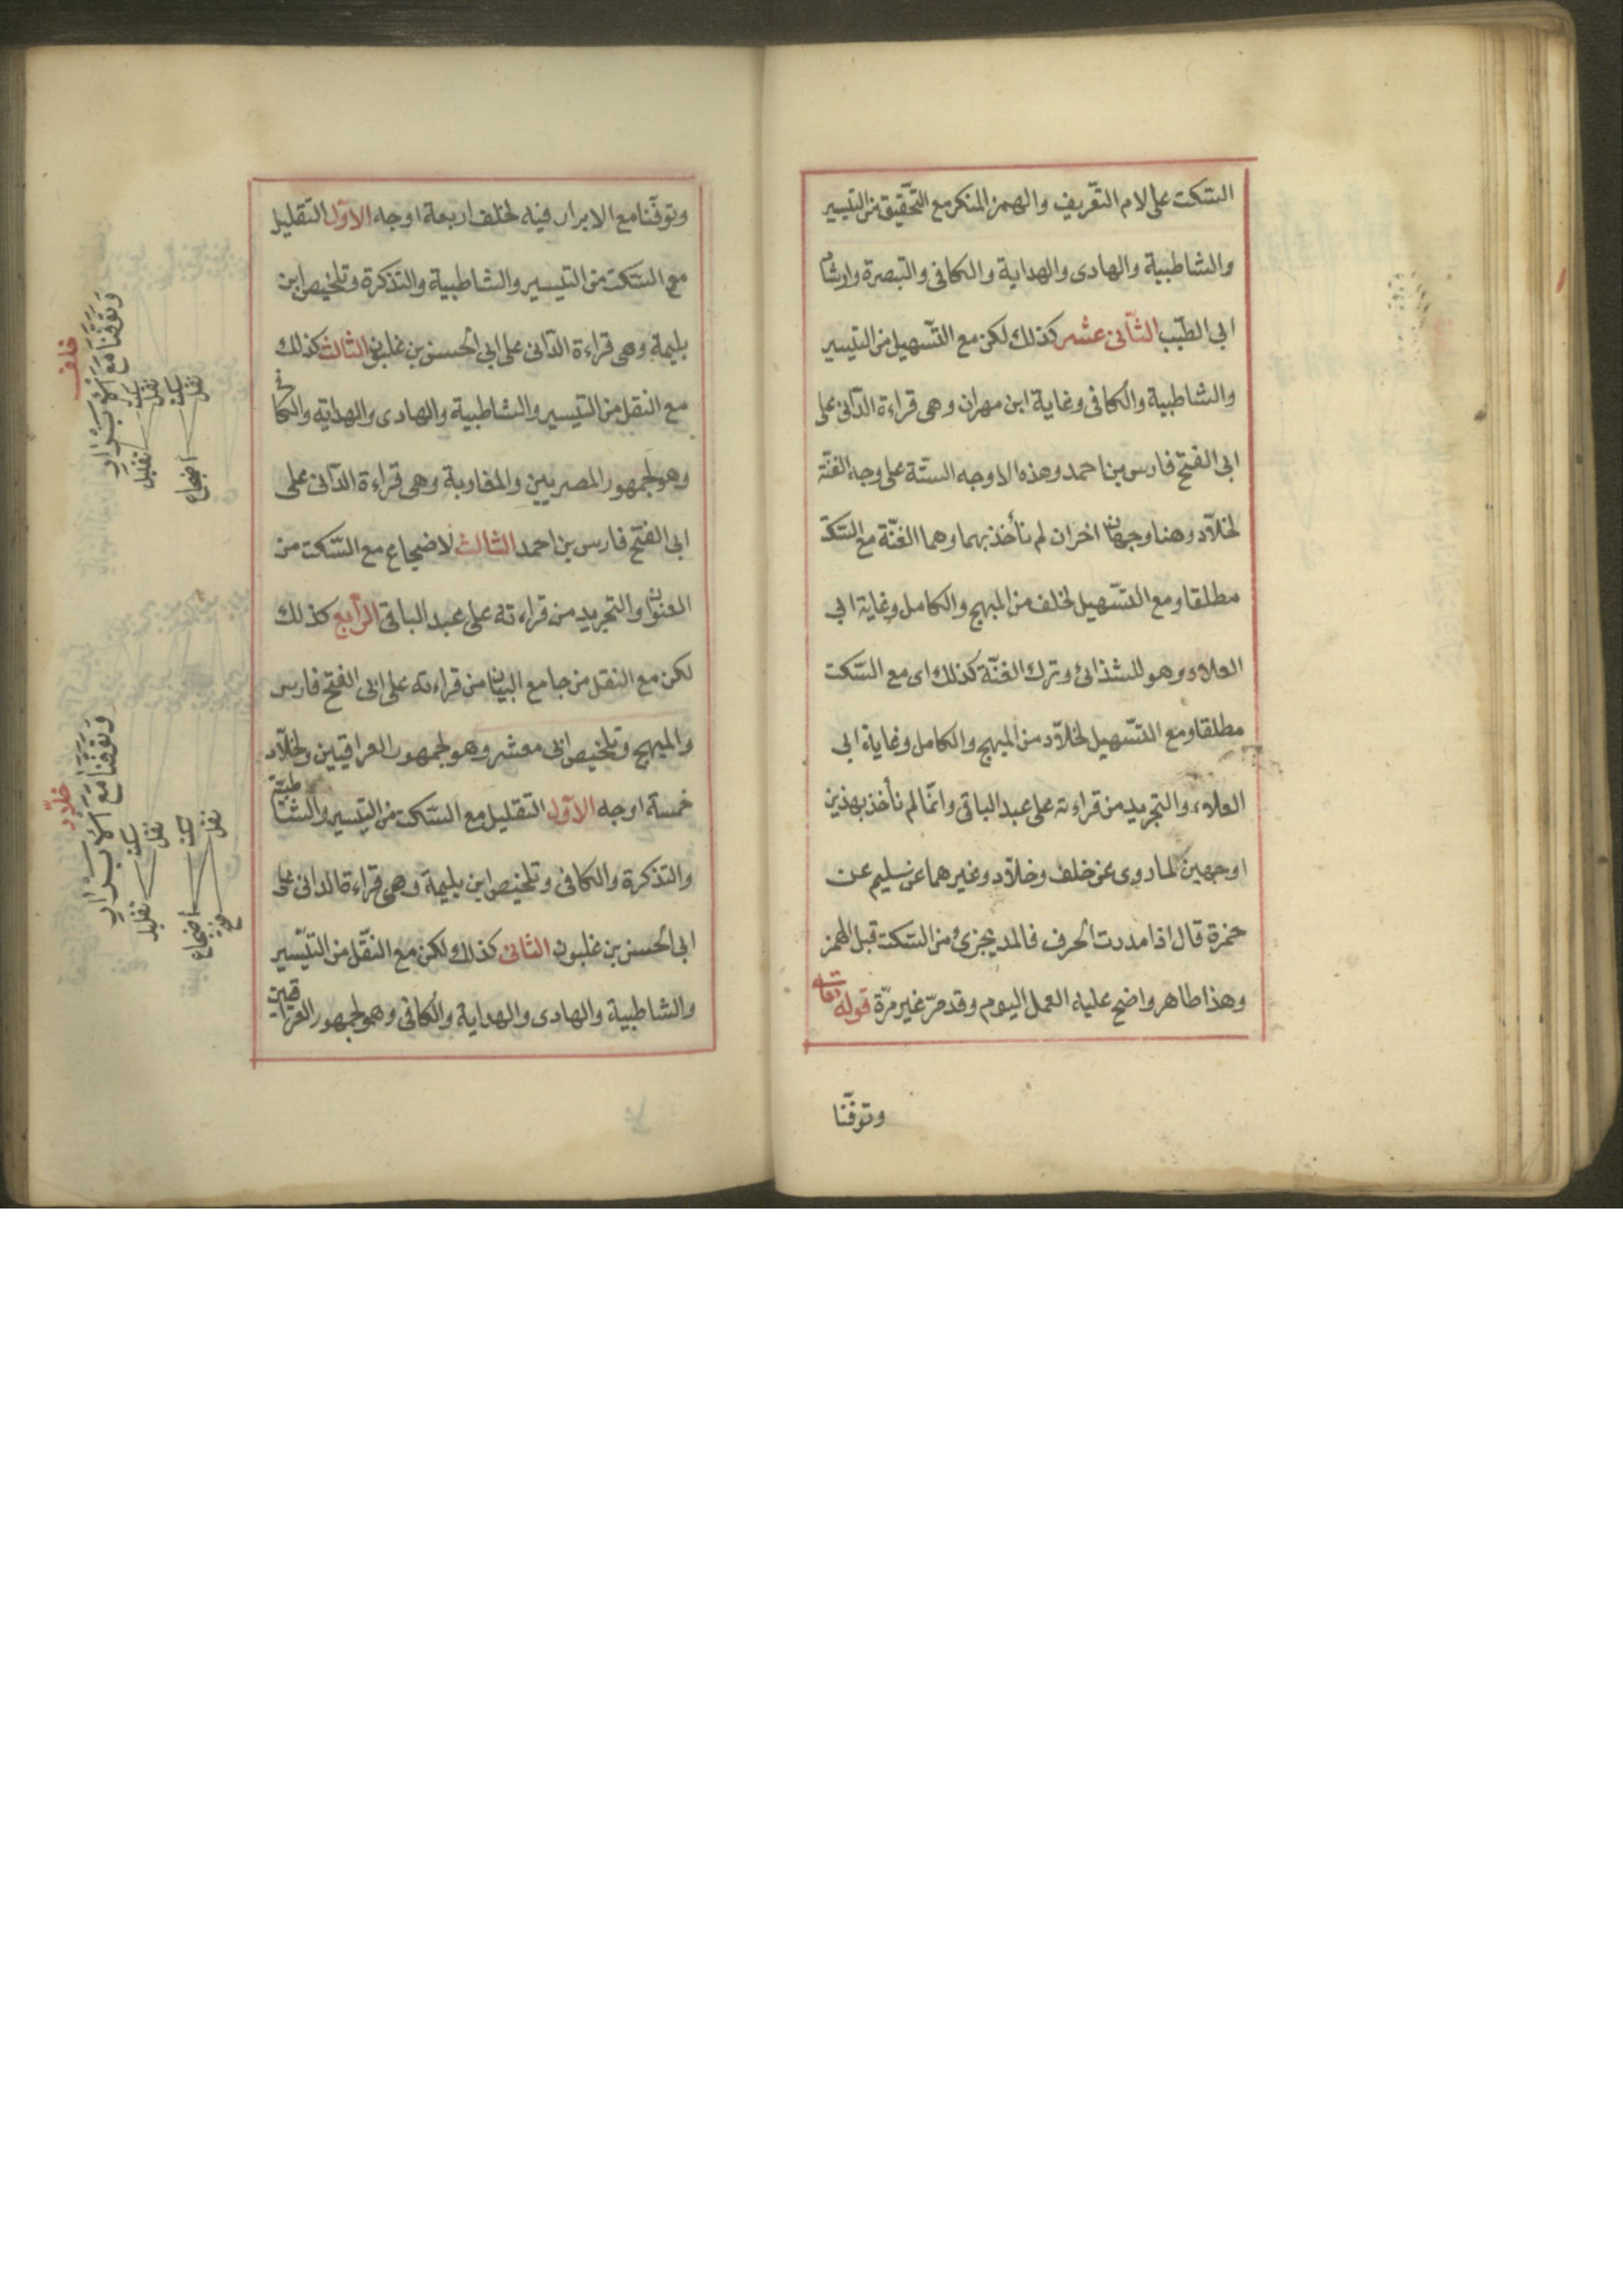 السّكت على لام التّعريف والهمز المنكر مع التّحقيق من التيسير
والشاطبية والهادى والهداية والكافى والتبصرة وارشاد
ابى الطيّب الثّانى عشر كذلك لكن مع التّسهيل من التيسير
والشاطبية والكافى وغاية ابن مهران وهى قراءة الدّانى على
ابى الفتح فارس بن احمد وهذه الاوجه الستّة على وجه الغنّة
لخلّاد وهنا وجهان اخران لم نأخذ بهما وهما الغنّة مع السّكت
مطلقا ومع التّسهيل لخلف من المبهج والكامل وغاية ابى
العلاء وهو للشذائى وترك الغنّة كذلك اى مع السّكت
مطلقا ومع التّسهيل لخلّاد من المبهج والكامل وغاية ابى
العلاء والتجريد من قراءته على عبد الباقى وانّما لم نأخذ بهذين
اوجهين لما روى عن خلف وخلّاد وغيرهما عن سليم عن
حمزة قال اذا مددت الحرف فالمد يجزى من السّكت قبل الهمز
وهذا طاهر واضح عليه العمل اليوم وقد مرّ غير مرّة قوله تعالى
وتوفّنا
وتوفّنا مع الابرار فيه لخلف اربعة اوجه الاوّل التّقليل
مع السّكت من التيسير والشاطبية والتذكرة وتلخيص ابن
بليمة وهى قراءة الدّانى على ابى الحسن بن غلبون الثالث كذلك
مع النقل من التيسير والشاطبية والهادى والهداية والكافى
وهو لجمهور المصريين والمغاربة وهى قراءة الدّانى على
ابى الفتح فارس بن احمد الثالث لاضجاع مع السّكت من
العنوان والتجريد من قراءته على عبد الباقى الرّابع كذلك
لكن مع النقل من جامع البيان من قراءته على ابى الفتح فارس
والمبهج وتلخيص ابى معشر وهو لجمهور العراقيين ولخلّاد
خمسة اوجه الاوّل التقليل مع السّكت من التيسير والشاطبيّة
والتذكرة والكافى وتلخيص ابن بليمة وهى قراءة الدانى على
ابى الحسن بن غلبون الثانى كذلك لكن مع النّقل من التيّسير
والشاطبية والهادى والهداية والكافى وهو لجمهور العراقيين
خلف
وَتَوَفَّنَا مَعَ الْأَبْرَارِ
سكت نقل سكت نقل
تقليل اضجاع
خلّاد
وَتَوَفَّنَا مَعَ الْأَبْرَارِ
سكت نقل سكت نقل
تقليل اضجاع فتح